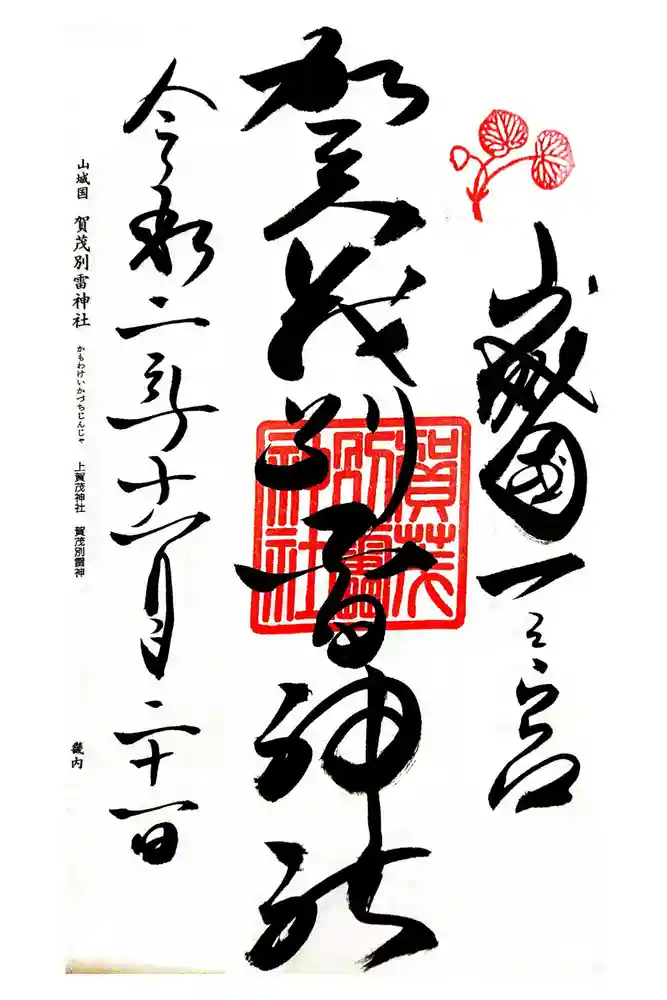 山城國一之宮
賀茂別雷神社
賀茂
別雷
神社
令和二年十一月二十一日
山城国 賀茂別雷神社 かもわけいかづちじんじゃ 上賀茂神社 賀茂別雷神 畿内